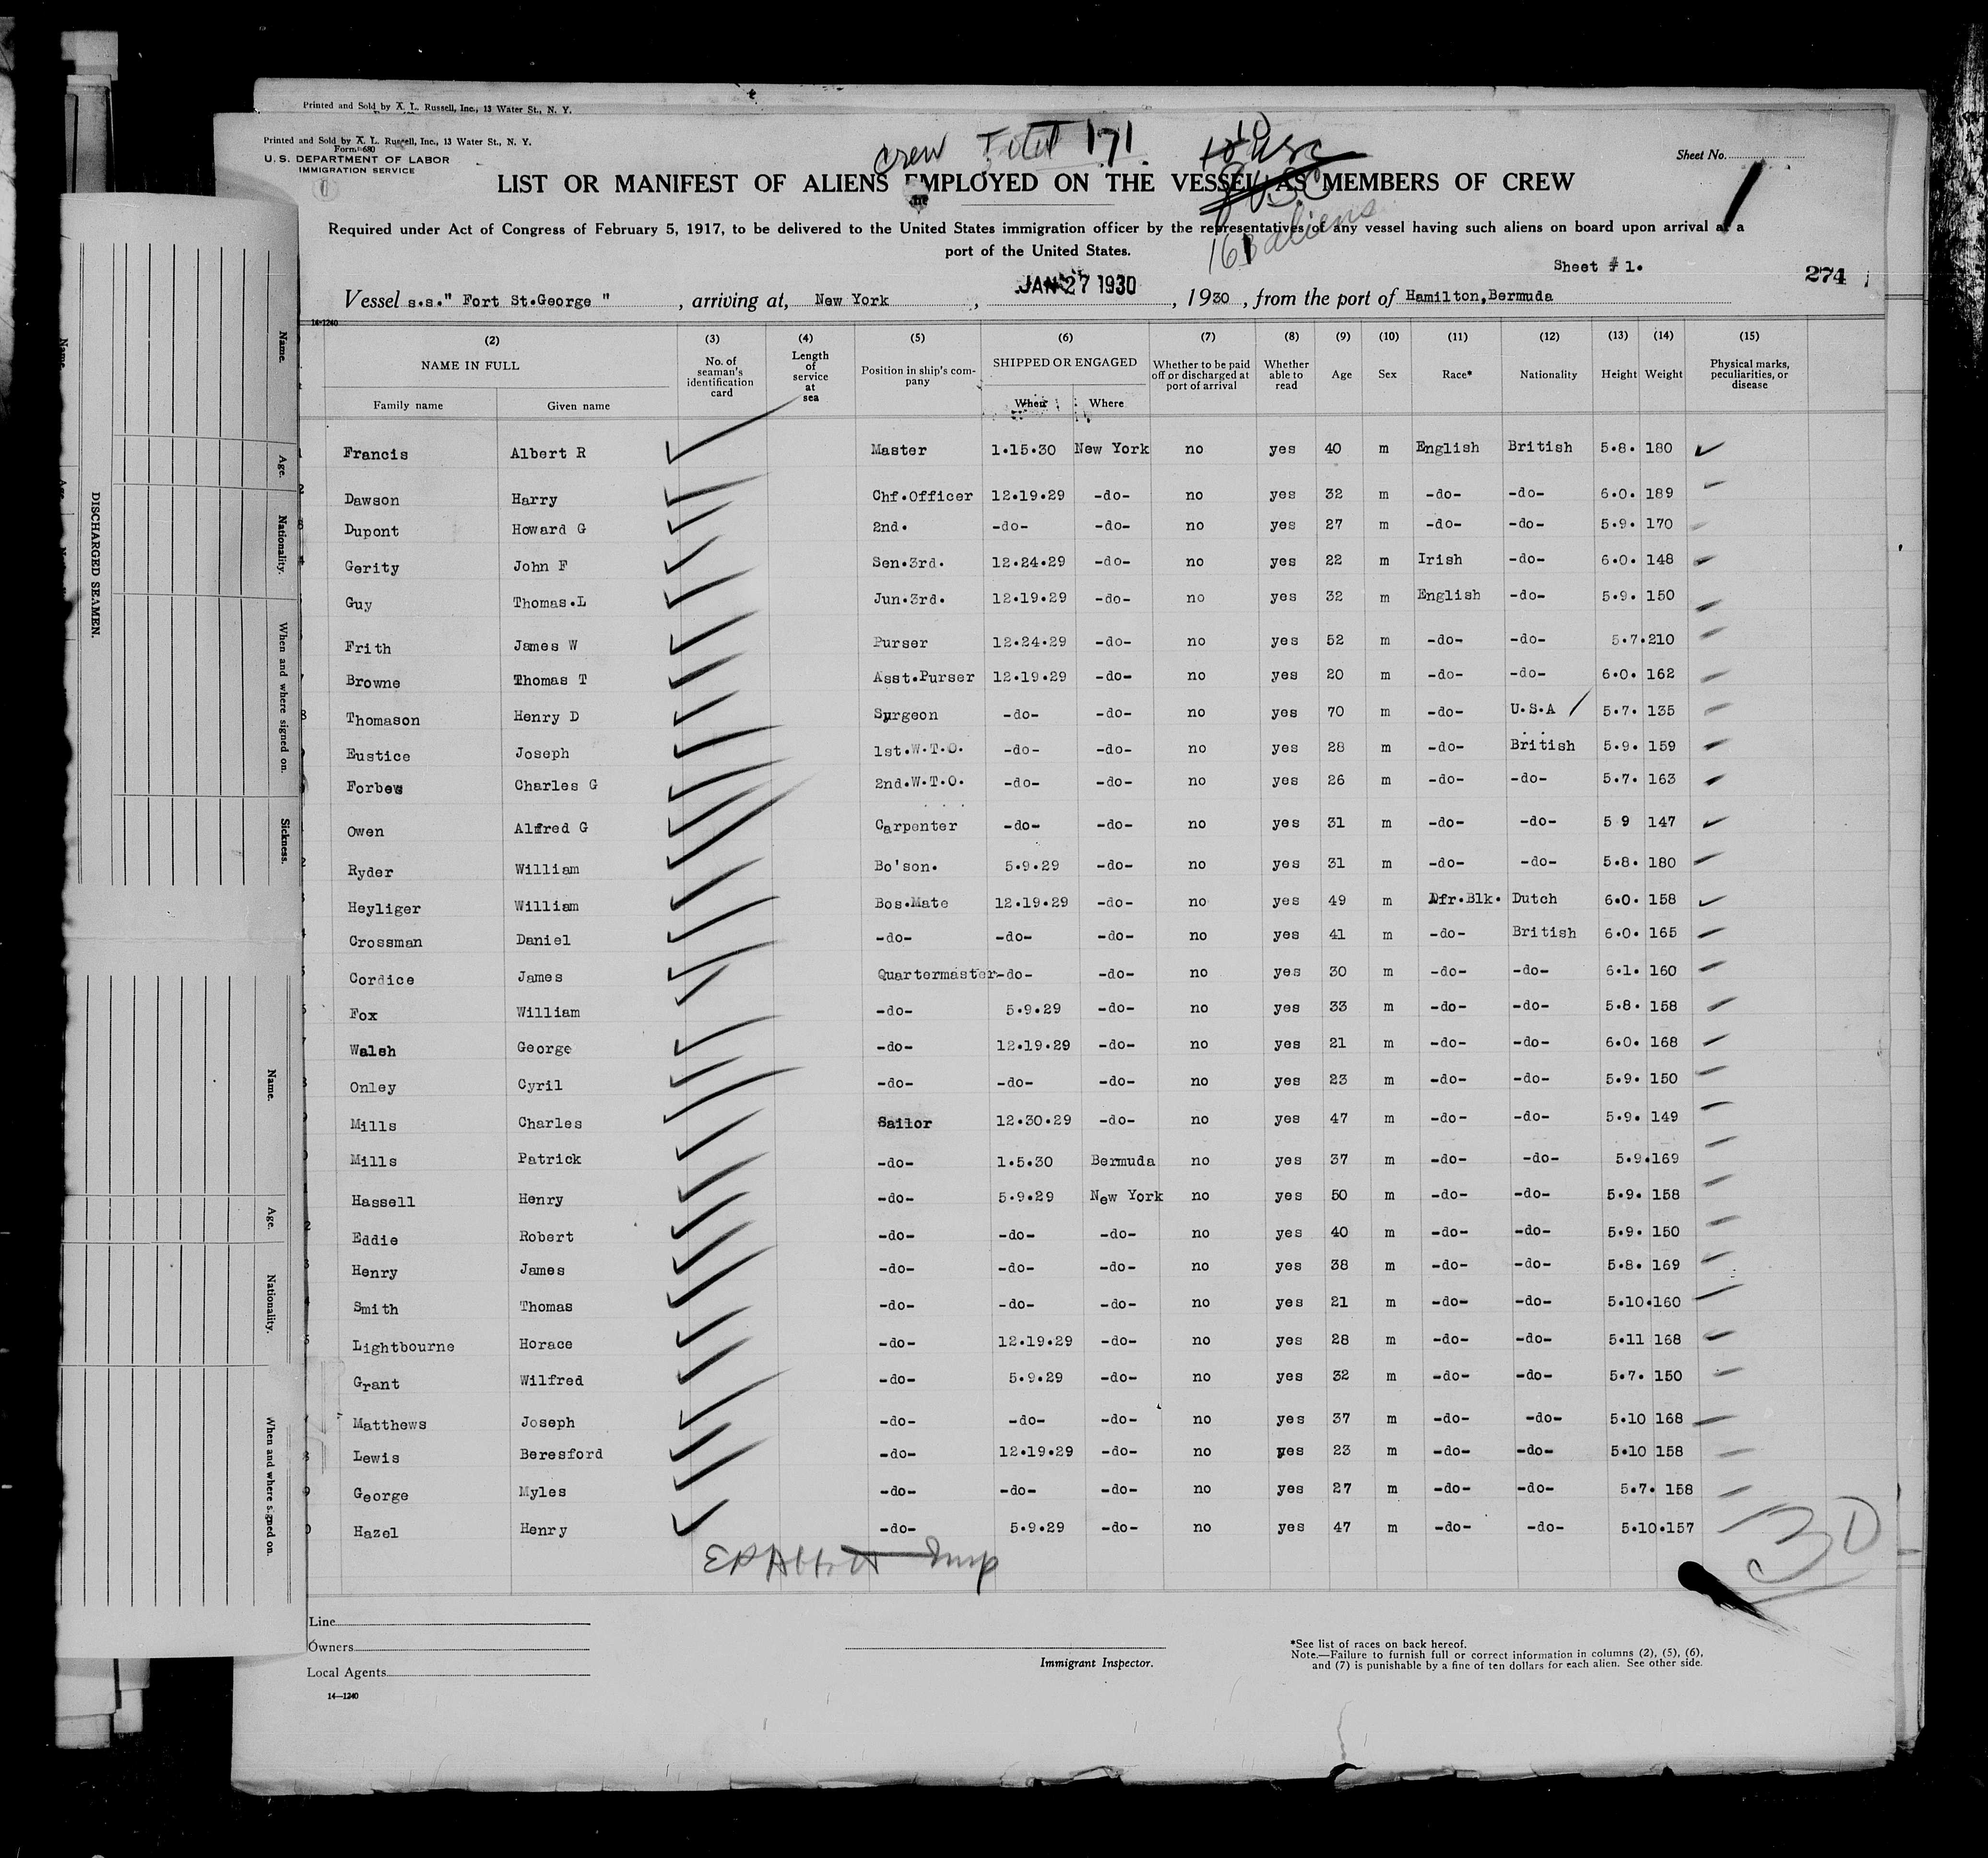 Printed and Sold by A. L. Russell, Inc., 13 Water St., N. Y.
Printed and Sold by A. L. Russell, Inc., 13 Water St., N. Y.
Form 680
U. S. DEPARTMENT OF LABOR
IMMIGRATION SERVICE
crew Total 171
Sheet No.
LIST OR MANIFEST OF ALIENS EMPLOYED ON THE VESSEL AS MEMBERS OF CREW
Required under Act of Congress of February 5, 1917, to be delivered to the United States immigration officer by the representatives of any vessel having such aliens on board upon arrival at a
port of the United States.
161 aliens
Sheet # 1.
274
JAN 27 1930
Vessel s.s." Fort St.George ", arriving at, New York, 1930, from the port of Hamilton,Bermuda
14-1240
(2) (3) (4) (5) (6) (7) (8) (9) (10) (11) (12) (13) (14) (15)
NAME IN FULL No. of seaman's identification card Length of service at sea Position in ship's company SHIPPED OR ENGAGED Whether to be paid off or discharged at port of arrival Whether able to read Age Sex Race* Nationality Height Weight Physical marks, peculiarities, or disease
Family name Given name When Where
Francis Albert R Master 1.15.30 New York no yes 40 m English British 5.8. 180
Dawson Harry Chf.Officer 12.19.29 -do- no yes 32 m -do- -do- 6.0. 189
Dupont Howard G 2nd. -do- -do- no yes 27 m -do- -do- 5.9. 170
Gerity John F Sen.3rd. 12.24.29 -do- no yes 22 m Irish -do- 6.0. 148
Guy Thomas.L Jun.3rd. 12.19.29 -do- no yes 32 m English -do- 5.9. 150
Frith James W Purser 12.24.29 -do- no yes 52 m -do- -do- 5.7.210
Browne Thomas T Asst.Purser 12.19.29 -do- no yes 20 m -do- -do- 6.0. 162
Thomason Henry D Surgeon -do- -do- no yes 70 m -do- U.S.A 5.7. 135
Eustice Joseph 1st.W.T.O. -do- -do- no yes 28 m -do- British 5.9. 159
Forbes Charles G 2nd.W.T.O. -do- -do- no yes 26 m -do- -do- 5.7. 163
Owen Alfred G Carpenter -do- -do- no yes 31 m -do- -do- 5 9 147
Ryder William Bo'son. 5.9.29 -do- no yes 31 m -do- -do- 5.8. 180
Heyliger William Bos.Mate 12.19.29 -do- no yes 49 m Afr.Blk. Dutch 6.0. 158
Crossman Daniel -do- -do- -do- no yes 41 m -do- British 6.0. 165
Cordice James Quartermaster -do- -do- no yes 30 m -do- -do- 6.1. 160
Fox William -do- 5.9.29 -do- no yes 33 m -do- -do- 5.8. 158
Walsh George -do- 12.19.29 -do- no yes 21 m -do- -do- 6.0. 168
Onley Cyril -do- -do- -do- no yes 23 m -do- -do- 5.9. 150
Mills Charles Sailor 12.30.29 -do- no yes 47 m -do- -do- 5.9. 149
Mills Patrick -do- 1.5.30 Bermuda no yes 37 m -do- -do- 5.9.169
Hassell Henry -do- 5.9.29 New York no yes 50 m -do- -do- 5.9. 158
Eddie Robert -do- -do- -do- no yes 40 m -do- -do- 5.9. 150
Henry James -do- -do- -do- no yes 38 m -do- -do- 5.8. 169
Smith Thomas -do- -do- -do- no yes 21 m -do- -do- 5.10.160
Lightbourne Horace -do- 12.19.29 -do- no yes 28 m -do- -do- 5.11 168
Grant Wilfred -do- 5.9.29 -do- no yes 32 m -do- -do- 5.7. 150
Matthews Joseph -do- -do- -do- no yes 37 m -do- -do- 5.10 168
Lewis Beresford -do- 12.19.29 -do- no yes 23 m -do- -do- 5.10 158
George Myles -do- -do- -do- no yes 27 m -do- -do- 5.7. 158
Hazel Henry -do- 5.9.29 -do- no yes 47 m -do- -do- 5.10.157
30
Line
Owners
Local Agents
14—1240
Immigrant Inspector.
*See list of races on back hereof.
Note.—Failure to furnish full or correct information in columns (2), (5), (6),
and (7) is punishable by a fine of ten dollars for each alien. See other side.
DISCHARGED SEAMEN.
Name.
Age.
Nationality.
When and where signed on.
Sickness.
Name.
Age.
Nationality.
When and where signed on.